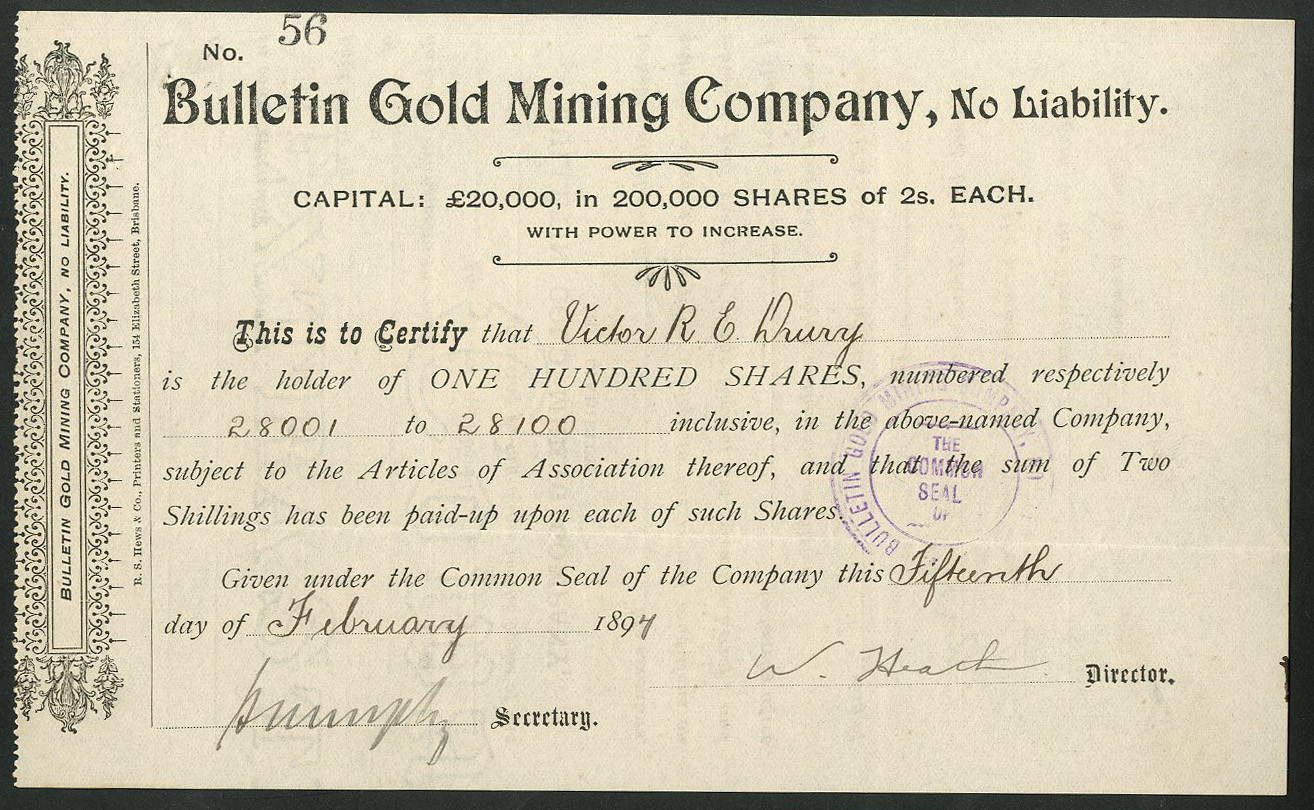 No. 56
Bulletin Gold Mining Company, No Liability.
CAPITAL: £20,000, in 200,000 SHARES of 2s. EACH.
WITH POWER TO INCREASE.
This is to Certify that Victor R E. Drury
is the holder of ONE HUNDRED SHARES, numbered respectively
28001 to 28100 inclusive, in the above-named Company,
subject to the Articles of Association thereof, and that the sum of Two
Shillings has been paid-up upon each of such Shares.
Given under the Common Seal of the Company this Fifteenth
day of February 1894
W. Heath Director.
Secretary.
BULLETIN GOLD MINING COMPANY, NO LIABILITY.
R. S. Hews & Co., Printers and Stationers, 154 Elizabeth Street, Brisbane.
BULLETIN GOLD MINING
THE
COMMON
SEAL
OF